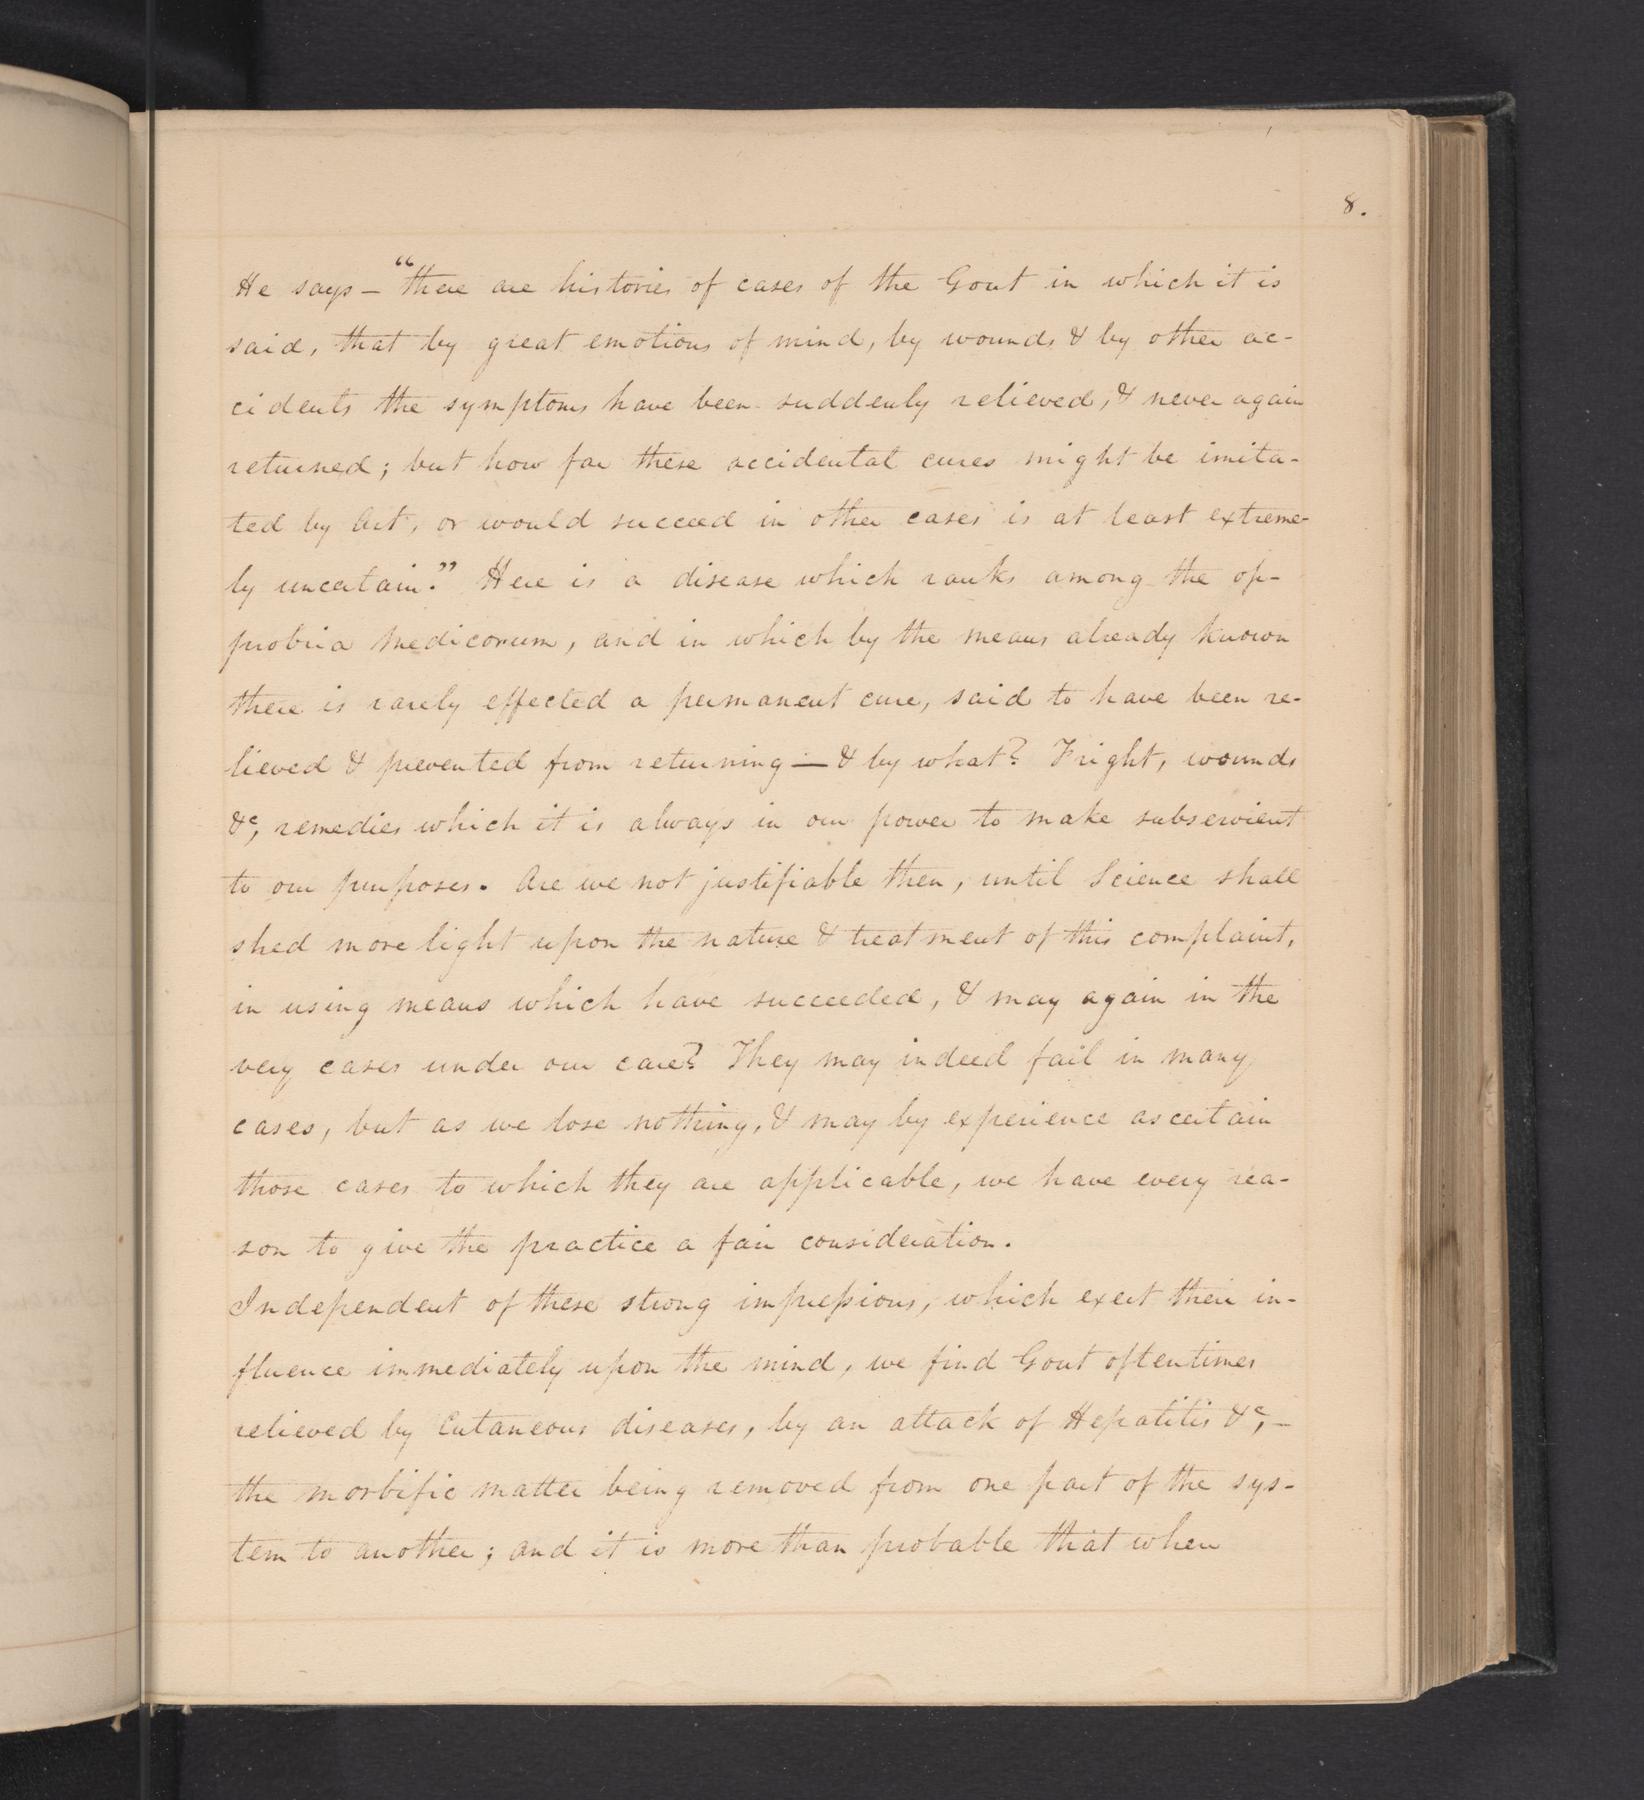 8.
He says — "there are histories of cases of the Gout in which it is
said, that by great emotions of mind, by wounds & by other ac-
cidents the symptoms have been suddenly relieved, & never again
returned; but how far these accidental cures might be imita-
ted by Art, or would succeed in other cases is at least extreme-
ly uncertain." Here is a disease which ranks among the op-
probria Medicorum, and in which by the means already known
there is rarely effected a permanent cure, said to have been re-
lieved & prevented from returning — & by what? Fright, wounds
&c, remedies which it is always in our power to make subservient
to our purposes. Are we not justifiable then, until Science shall
shed more light upon the nature & treatment of this complaint,
in using means which have succeeded, & may again in the
very cases under our care? They may indeed fail in many
cases, but as we lose nothing, & may by experience ascertain
those cases to which they are applicable, we have every rea-
son to give the practice a fair consideration.
Independent of these strong impressions, which exert their in-
fluence immediately upon the mind, we find Gout oftentimes
relieved by Cutaneous diseases, by an attack of Hepatitis &c, —
the morbific matter being removed from one part of the sys-
tem to another; and it is more than probable that when